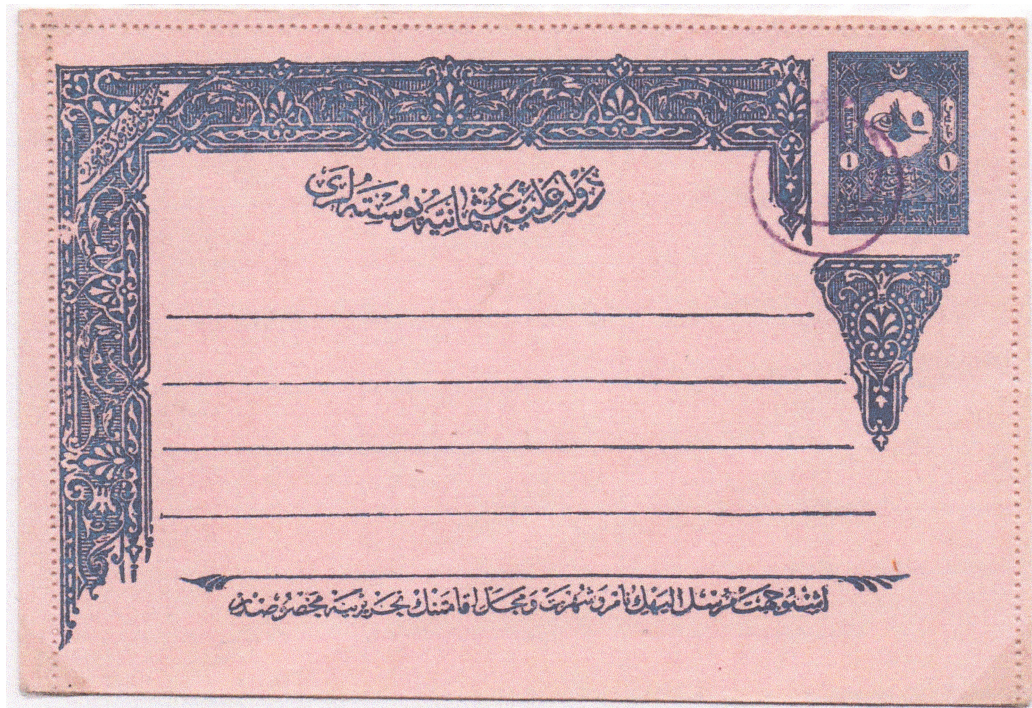 دولت علیهٔ عثمانیه پوسته لری
١
1
اشبو جهت مرسل الیهك نام و شهرت و محل اقامتنك تحریرینه مخصوصدر